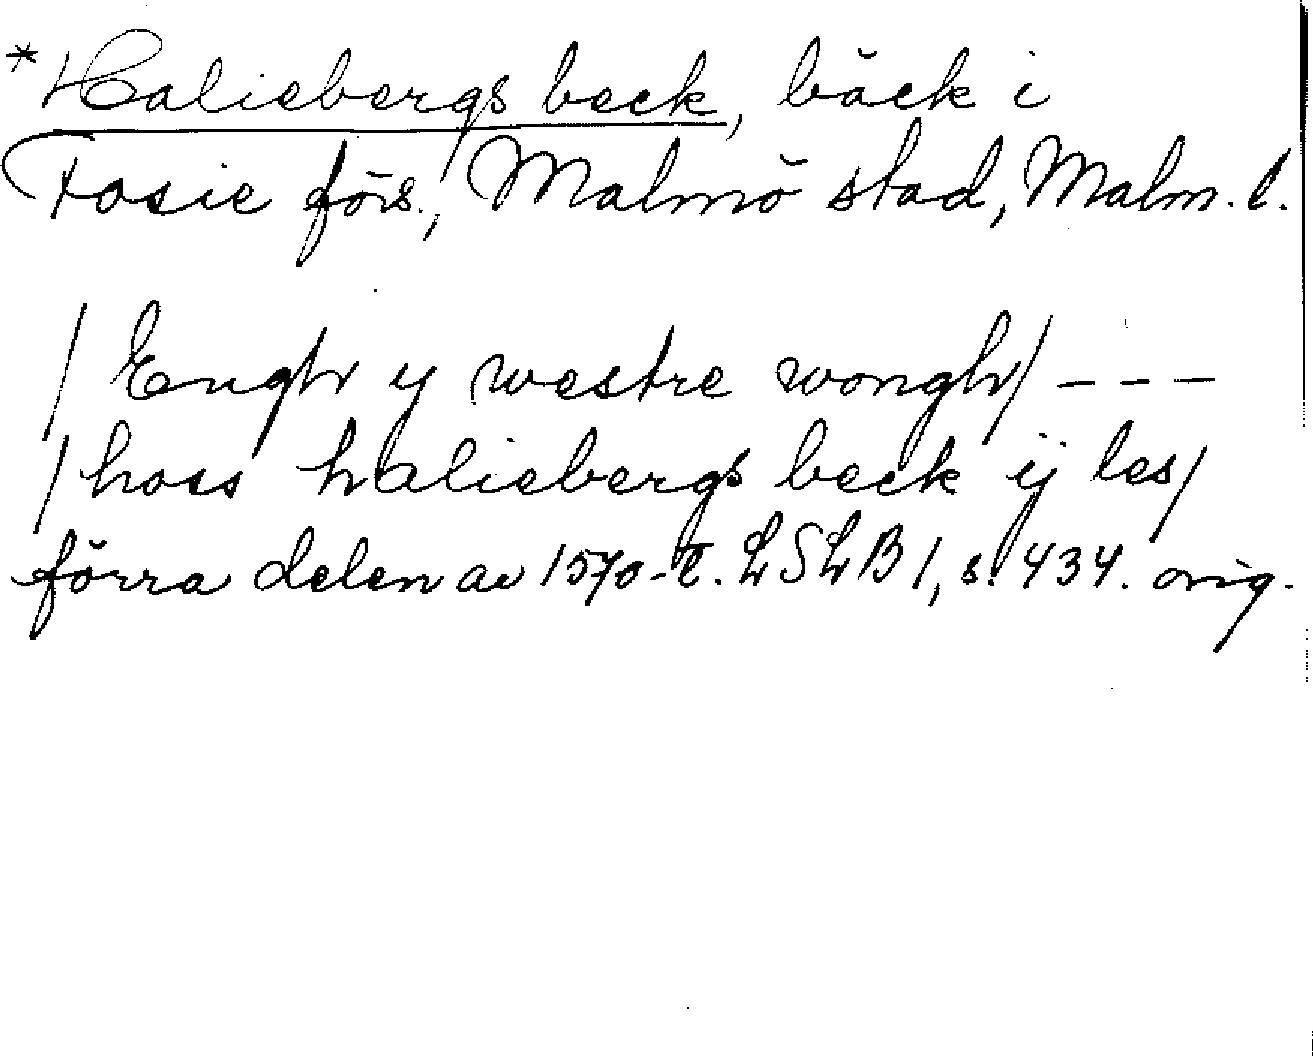 *Haliebergs beck, bäck i
Fosie förs., Malmö stad, Malm. l.
/ Engh y westre wongh / - - -
/ hoss haliebergs beck ij les /
förra delen av 1570-t. LSLB 1, s. 434. orig.